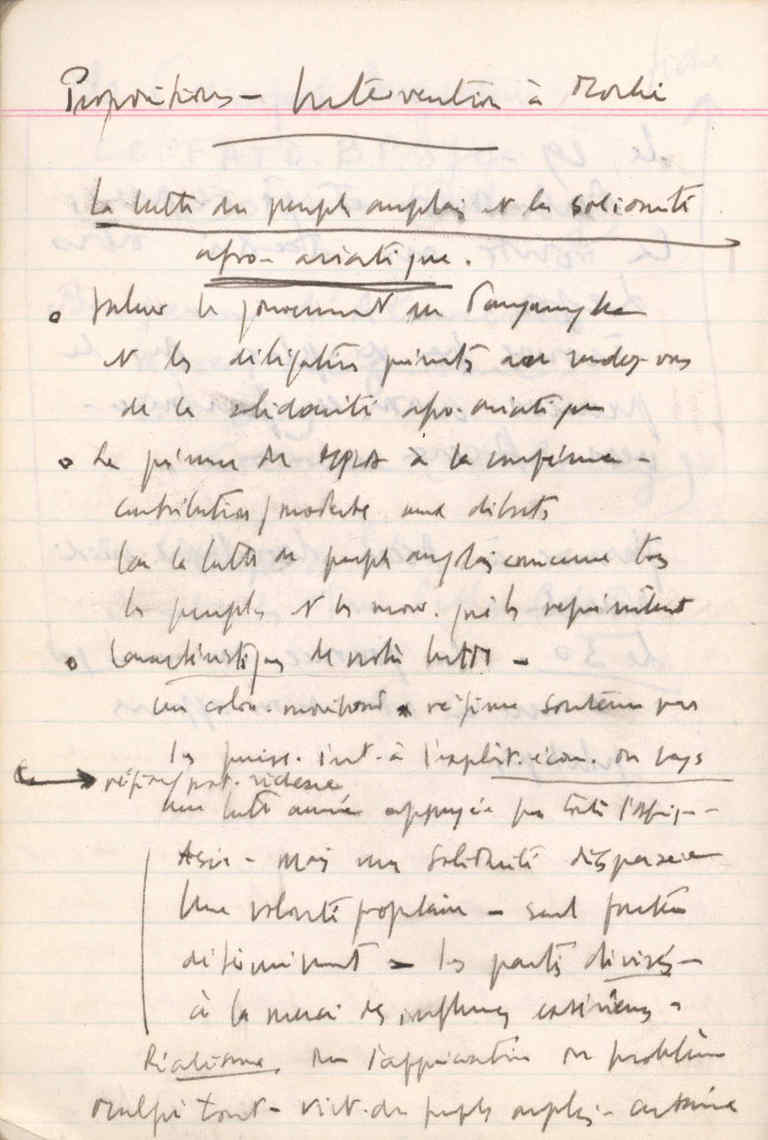 Propositions - Intervention à Moshi
La lutte du peuple angolais et la solidarité
afro-asiatique.
Saluer le gouvernement du Tanganyka
et les délégations présentes au rendez-vous
de la solidarité afro-asiatique
La présence du MPLA à la conférence -
contribution modeste aux débats
Car la lutte du peuple angolais concerne tous
les peuples et les mouv. qui les représentent
Caractéristiques de notre lutte -
un colon. moribond régime soutenu par
les puiss. int. à l'exploit. écon. du pays
une lutte armée appuyée par toute l'Afriq -
Asie - mais une solidarité dispersée
Une volonté populaire - seul facteur
déterminant - les partis divisés -
à la merci des influences extérieures -
Réalisme dans l'appréciation du problème
Malgré tout - vict. du peuple angolais - certaine